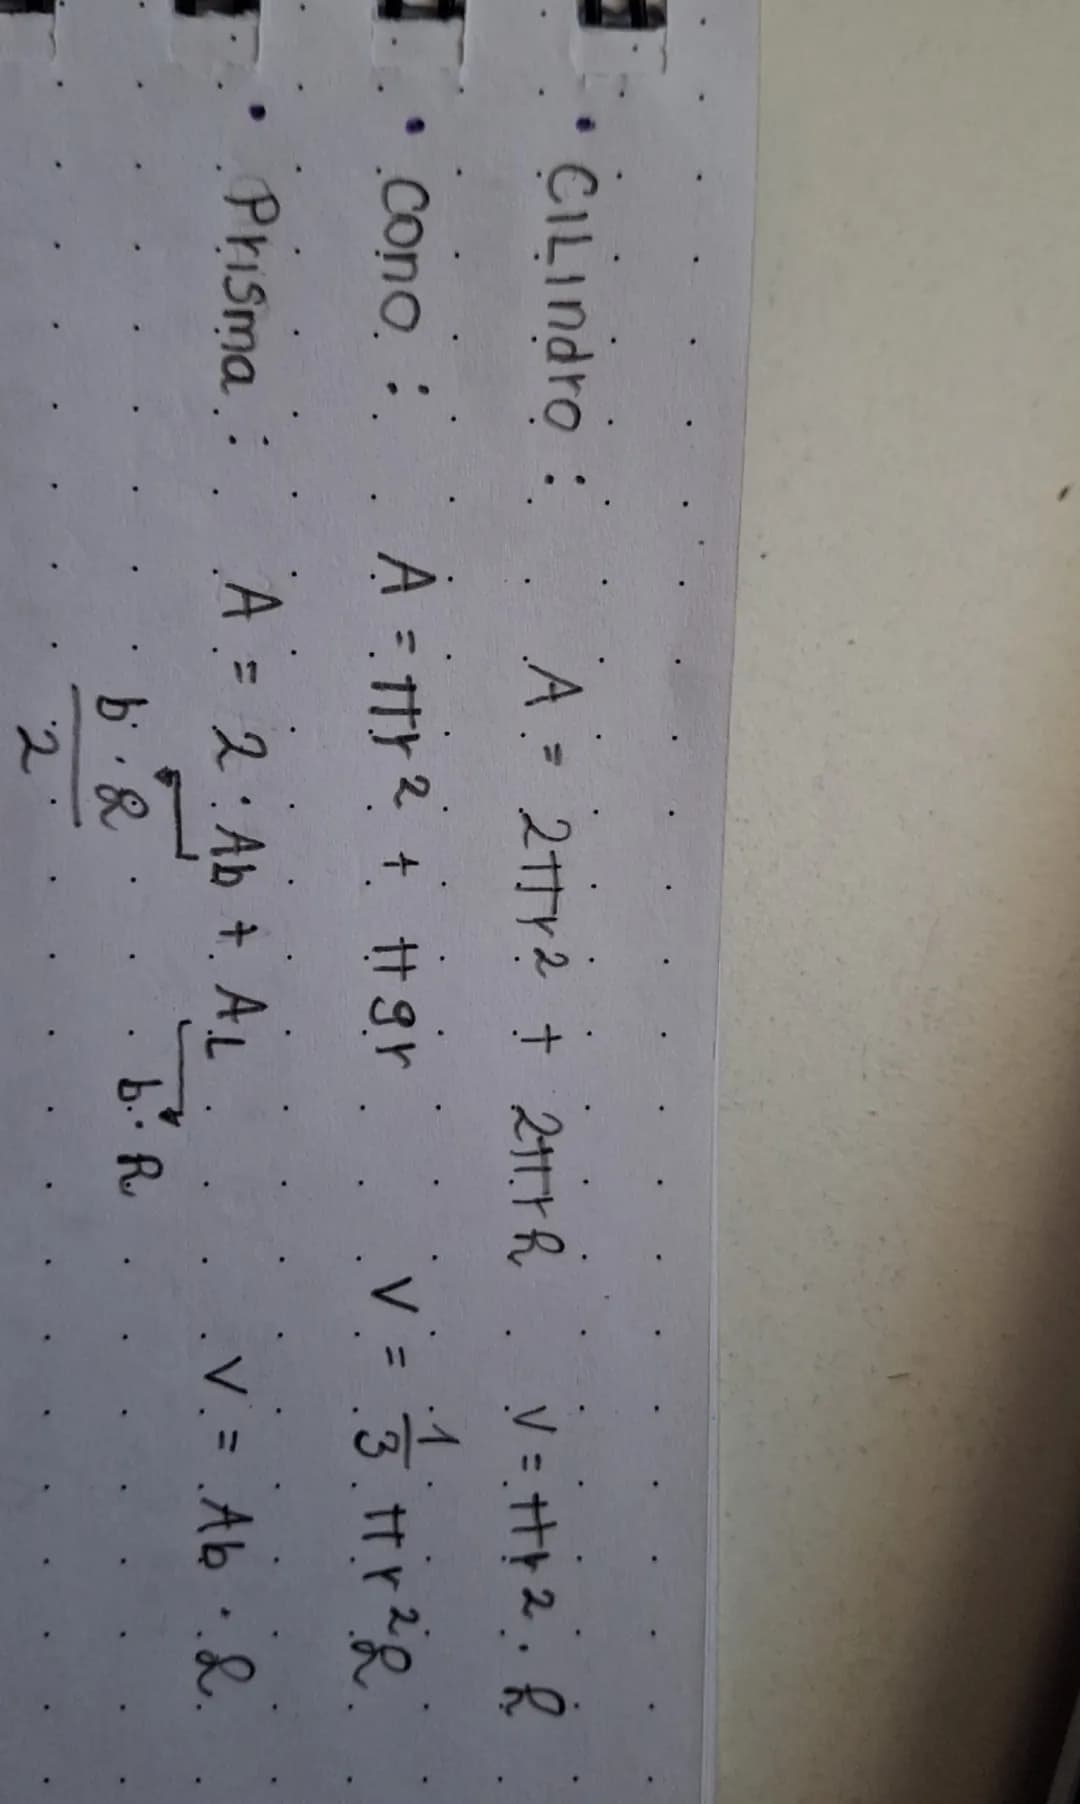 • CILindro : A = 2πr² + 2πrh V = πr² · h
• Cono : A = πr² + πgr V = 1/3 πr²h
• Prisma : A = 2 · Ab + AL V = Ab · h
b · h / 2 b · h